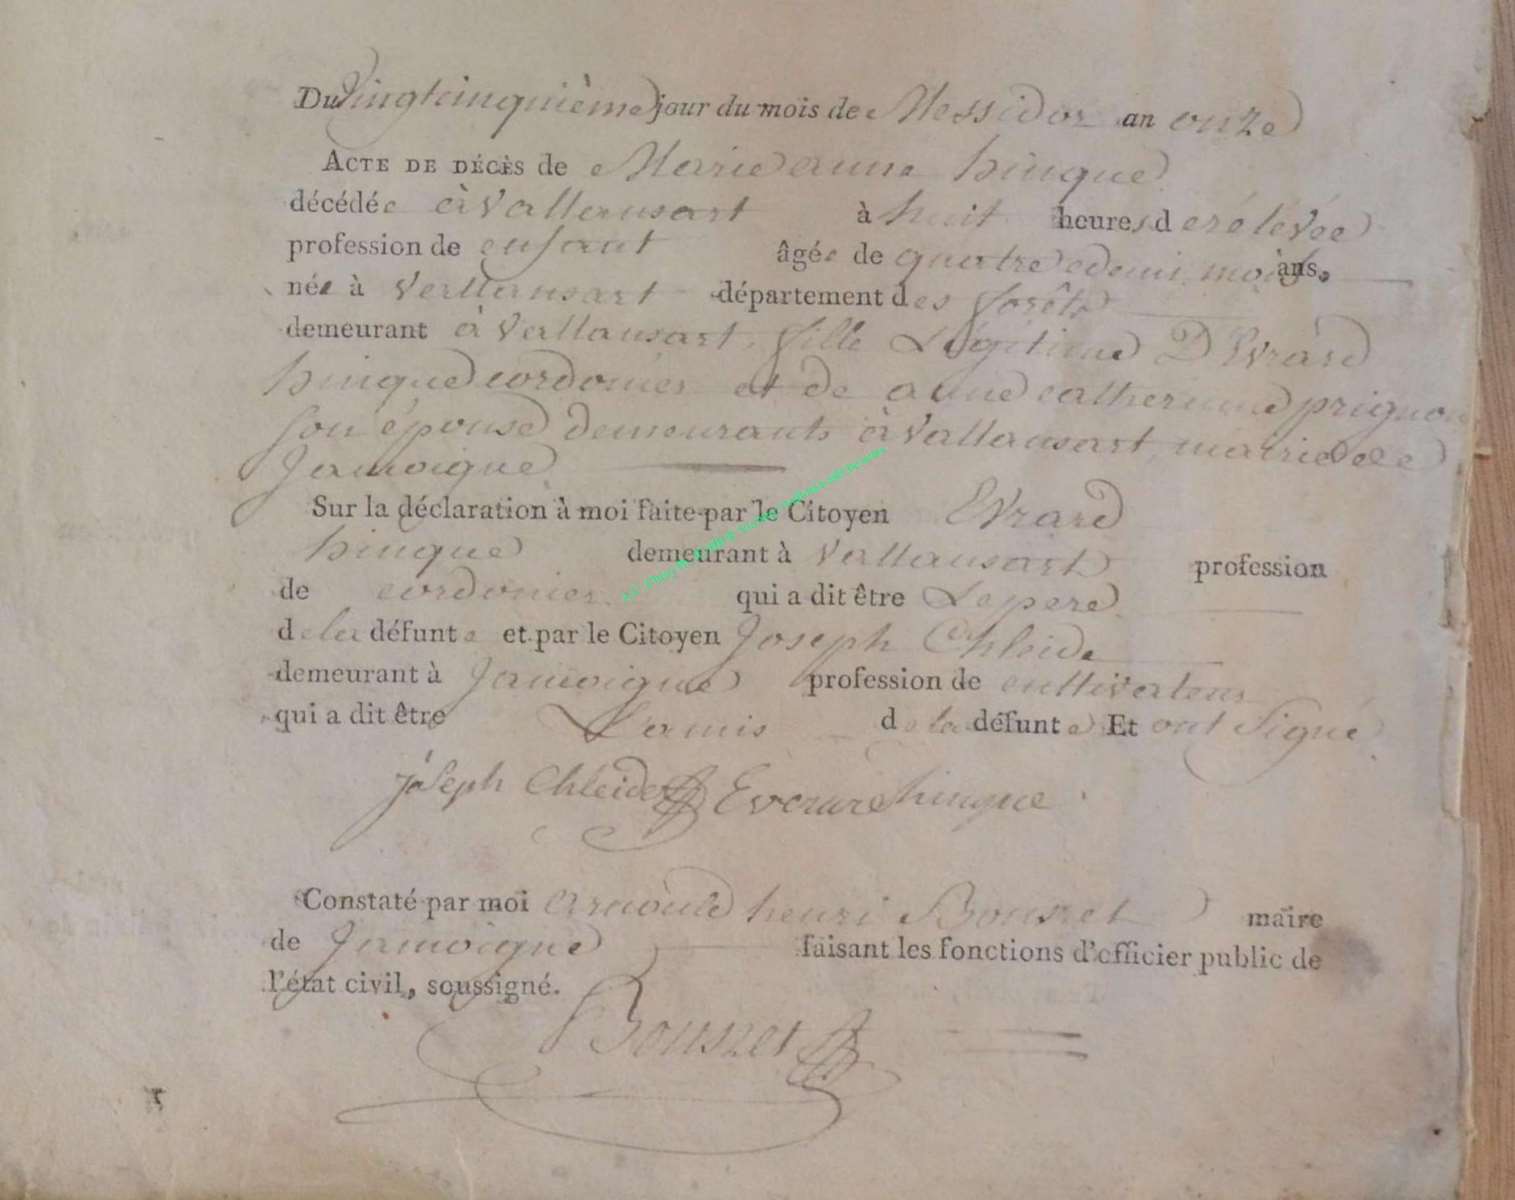 Du Vingtcinquième jour du mois de Messidor an onze
ACTE DE DÉCÈS de Marie anne hinque
décédée à Vallansart à huit heures de rélévée
profession de enfant âgée de quatre edemi mois ans.
née à Vallansart département des forêts
demeurant à Vallansart, fille Légitime D'Evrard
hinque cordonier et de anne catherinne prignon
Son épouse demeurants à Vallansart mairie de
Jamoigne
Sur la déclaration à moi faite par le Citoyen Evrard
hinque demeurant à Vallansart profession
de cordonier qui a dit être Le pere
de la défunte et par le Citoyen Joseph Chleide
demeurant à Jamoigne profession de cultivateur
qui a dit être L'amis de la défunte Et ont Signé
joseph Chleide Everard hinque
Constaté par moi arnould henri Bousret maire
de Jamoigne faisant les fonctions d'officier public de
l'état civil, soussigné.
Bousret